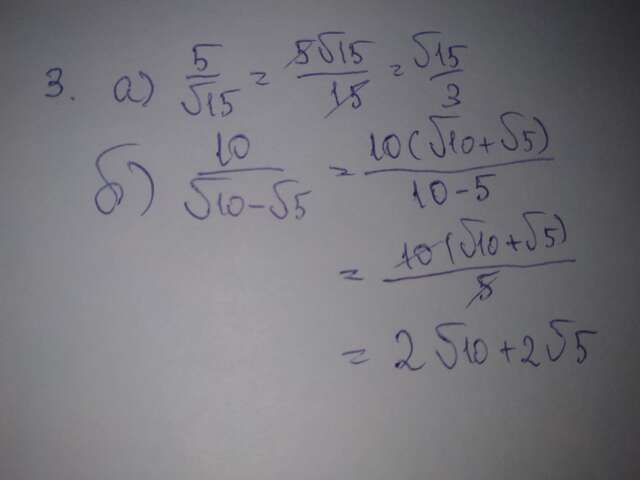 3. а) 5/√15 = 5√15/15 = √15/3
б) 10/(√10-√5) = 10(√10+√5)/(10-5)
= 10(√10+√5)/5
= 2√10+2√5